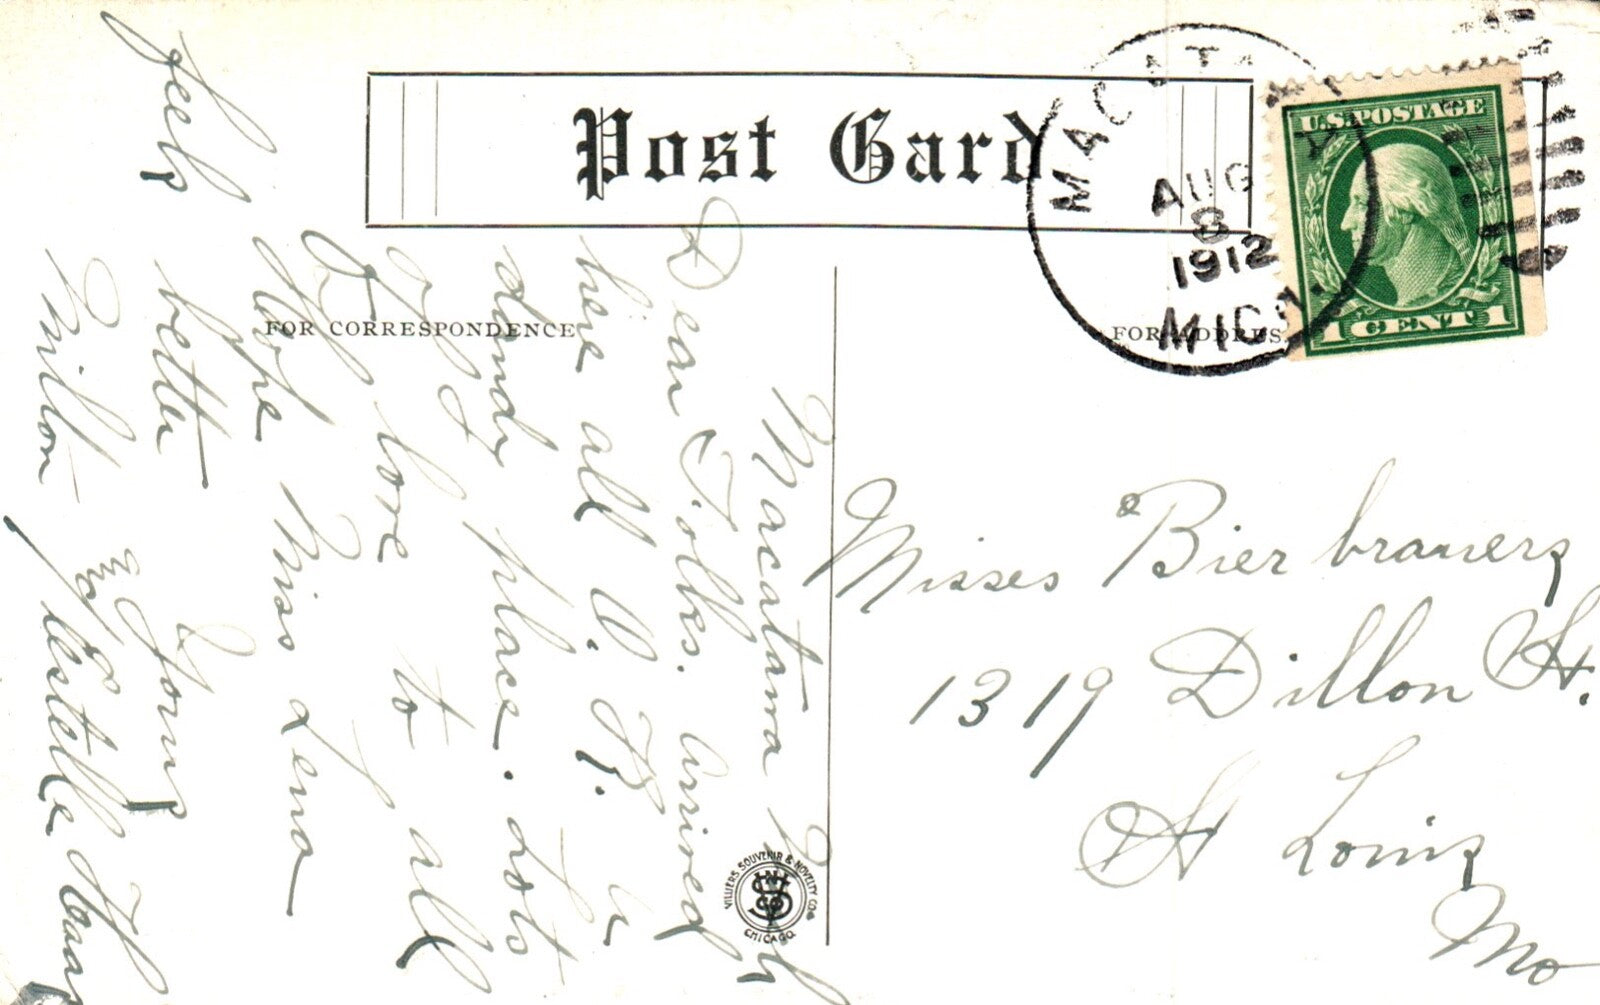 Post Card
MACATAWA
AUG
8
1912
MICH.
U.S. POSTAGE
1 CENT 1
FOR CORRESPONDENCE
FOR ADDRESS
Macatawa Mich
Dear Folks. Arrived
here all O.K. Is
dandy place. Lots
of love to all
Hope Miss Lena
feels better
Yours
Milton & Estelle
Misses Bierbrauers
1319 Dillon St.
St Louis
Mo
VILLIERS SOUVENIR & NOVELTY CO.
CHICAGO.